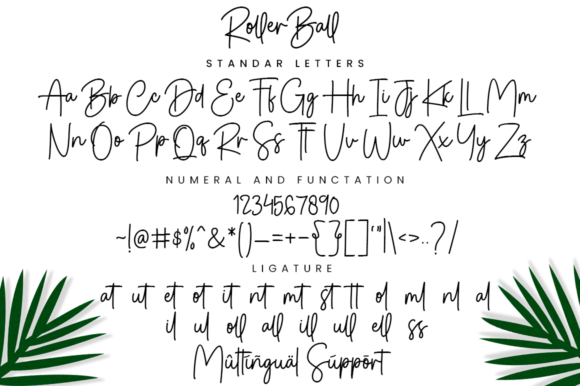 Roller Ball
STANDAR LETTERS
Aa Bb Cc Dd Ee Ff Gg Hh Ii Jj Kk Ll Mm
Nn Oo Pp Qq Rr Ss Tt Uu Vv Ww Xx Yy Zz
NUMERAL AND FUNCTATION
1234567890
~!@#$%^&*()_=+-{}[]'"|\<>..?/
LIGATURE
at ut et ot it nt mt st tt ol ml nl al
il ul oll all ill ull ell ss
Mültïngüäl Süppört